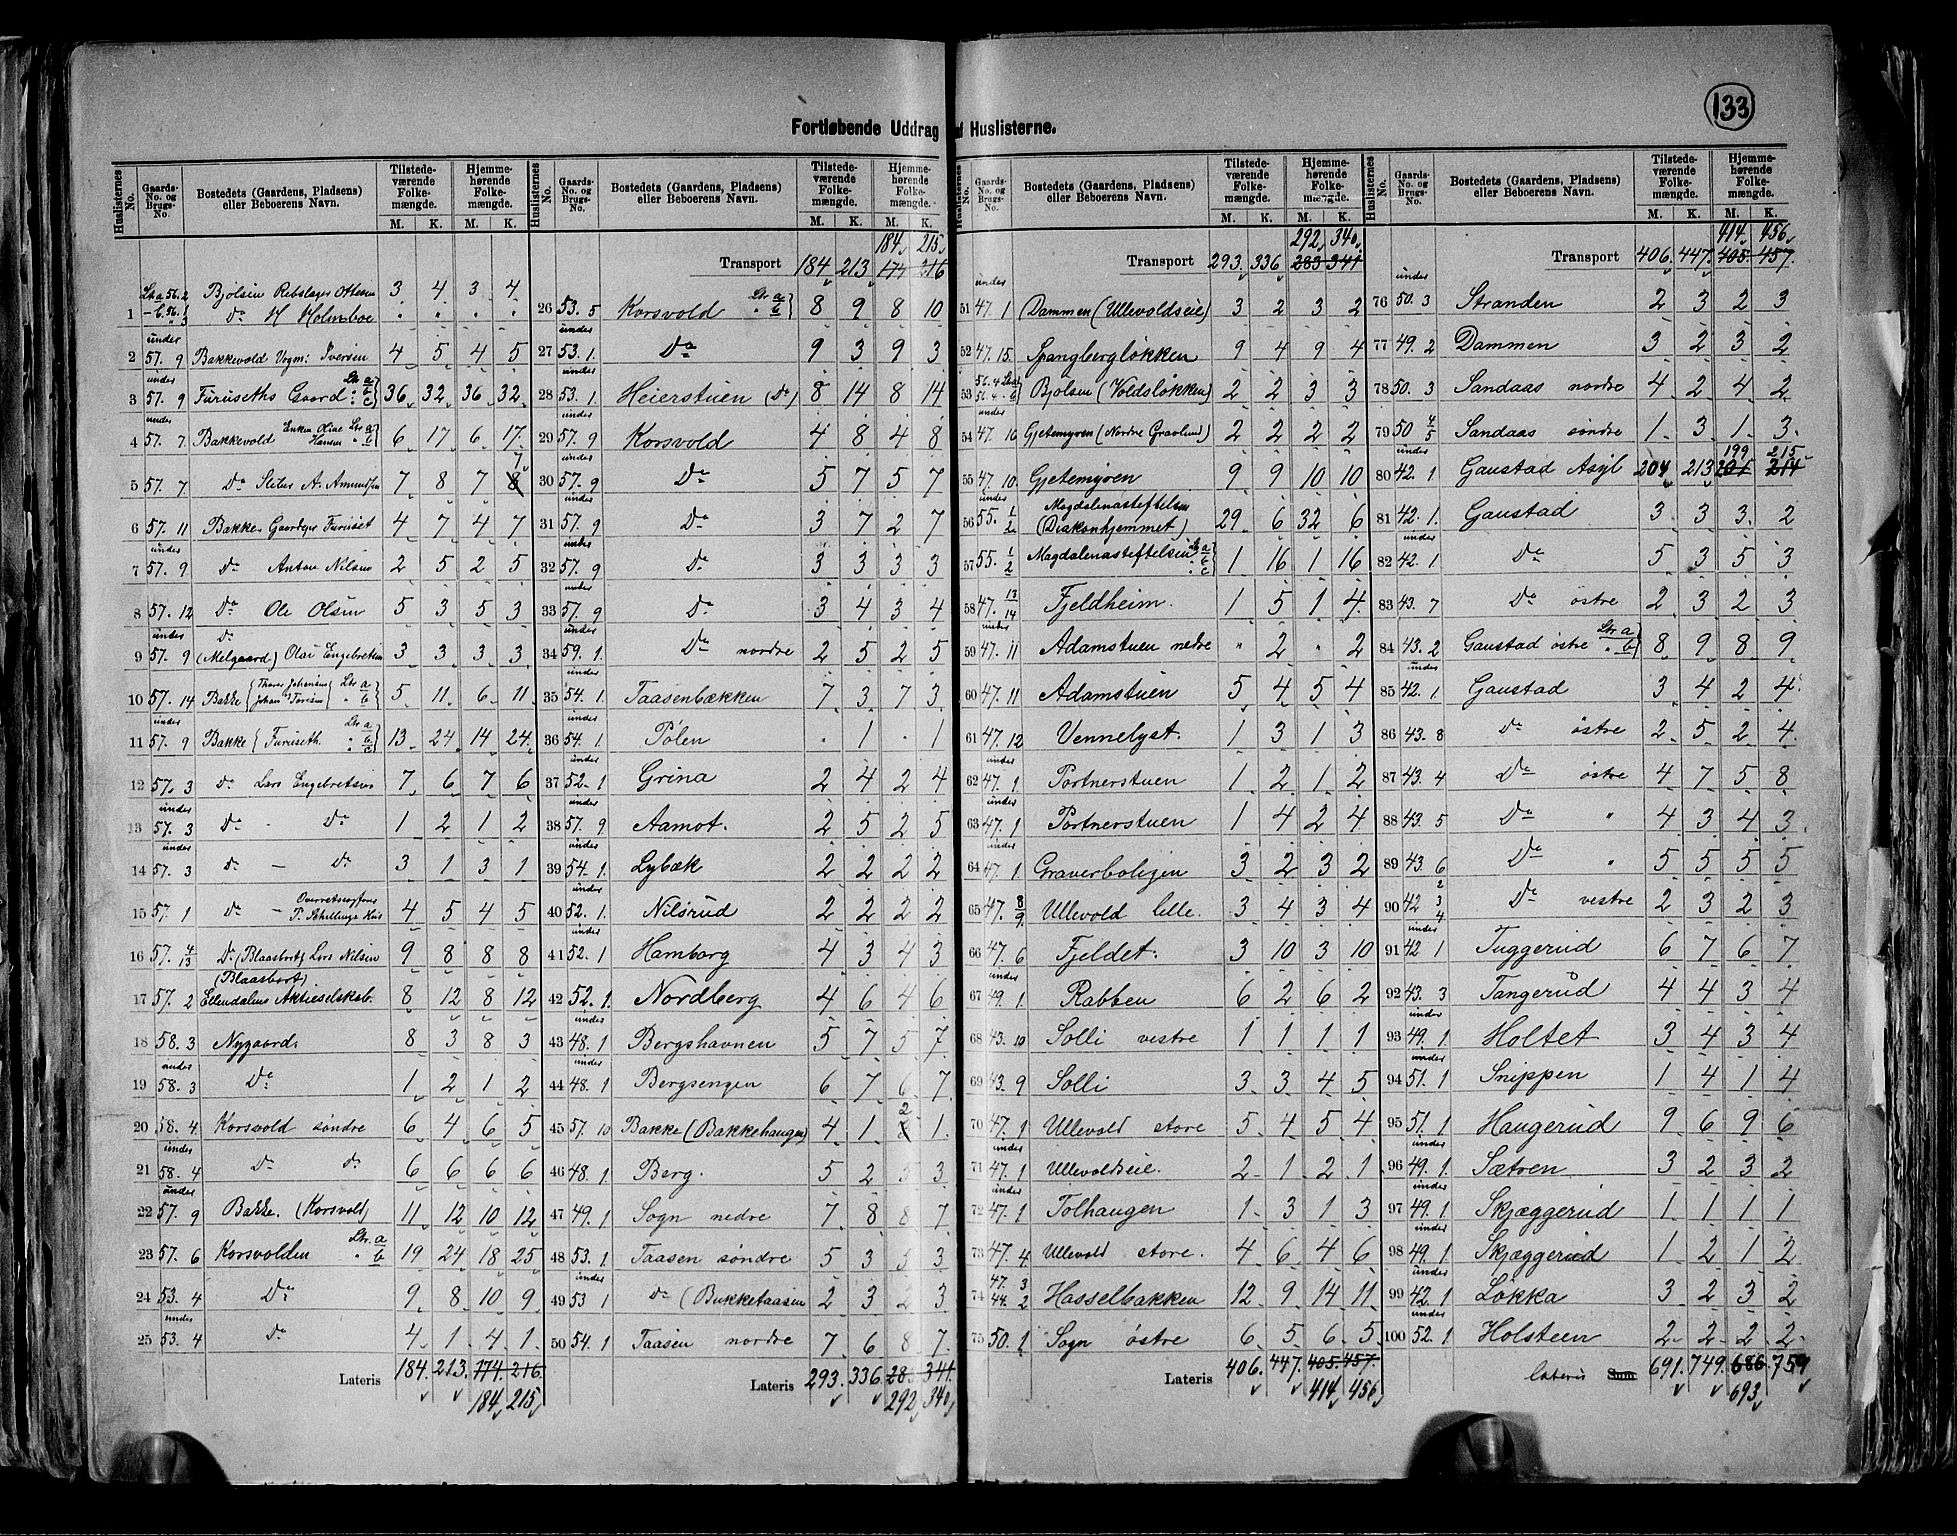 133
Fortløbende Uddrag af Huslisterne.
Huslisternes No. | Gaards-No. og Brugs-No. | Bostedets (Gaardens, Pladsens) eller Beboerens Navn. | Tilstedeværende Folkemængde. M. K. | Hjemmehørende Folkemængde. M. K.
1 Ltr. a 56. 2 Bjølsen Rebslager Ottesen 3 4 3 4
- b. 56. Do H Holmboe " " " "
under
2 57. 9 Bakkevold Vogm: Iversen 4 5 4 5
under
3 57. 9 Furuseths Gaard Ltr a b c 36 32 36 32
under
4 57. 7 Bakkevold Enken Oline Hansen Ltr a b 6 17 6 17
5 57. 7 Do Sletus A. Amundsen 7 8 7 8 7
6 57. 11 Bakke Gaardens Furuset 4 7 4 7
under
7 57. 9 Do Anton Nilsen 2 5 2 5
8 57. 12 Do Ole Olsen 5 3 5 3
under Do
9 57. 9 (Melgaard) Olai Engebretsen 3 3 3 3
10 57. 14 Bakke Ltr a b 5 11 6 11
under
11 57. 9 Bakke Furuseth. Ltr a b c 13 24 14 24
12 57. 3 Do Lars Engebretsen 7 6 7 6
under
13 57. 3 Do - Do 1 2 1 2
under
14 57. 3 Do - Do 3 1 3 1
15 57. 1 Do - T. Schellings Hus 4 5 4 5
16 57. 4/13 Do (Blaasbort) Lars Nilsen 9 8 8 8
(Blaasbort)
17 57. 2 Ellendalens Aktieselskab. 8 12 8 12
18 58. 3 Nygaard. 8 3 8 3
under
19 58. 3 Do 1 2 1 2
20 58. 4 Korsvold søndre 6 4 6 5
under
21 58. 4 Do do 6 6 6 6
under
22 57. 9 Bakke. (Korsvold) 11 12 10 12
23 57. 6 Korsvolden Ltr. a b 19 24 18 25
24 53. 4 Do 9 8 10 9
under
25 53. 4 Do 4 1 4 1
Lateris 184. 213. 174. 216.
184 215
184 215
Transport 184 213 174 216
26 53. 5 Korsvold Ltr a b 8 9 8 10
under
27 53. 1. Do 9 3 9 3
under
28 53. 1 Heierstuen (Do) 8 14 8 14
under
29 57. 9 Korsvold 4 8 4 8
under
30 57. 9 Do 5 7 5 7
under
31 57. 9 Do 3 7 2 7
under
32 57. 9 Do 3 3 3 3
under
33 57. 9 Do 3 4 3 4
under
34 59. 1. Do nordre 2 5 2 5
under
35 54. 1. Taasenbækken 7 3 7 3
under
36 54. 1. Pølen . 1 . 1
under
37 52. 1 Grina 2 4 2 4
under
38 57. 9 Aamot. 2 5 2 5
under
39 54. 1. Lybæk 2 2 2 2
under
40 52. 1. Nilsrud 2 2 2 2
under
41 52. 1 Hamborg 4 3 4 3
under
42 52. 1. Nordberg 4 6 4 6
under
43 48. 1 Bergshavnen 5 7 5 7
under
44 48. 1 Bergsengen 6 7 6 7
45 57. 10 Bakke (Bakkehaugen) 4 1 2 1
46 48. 1 Berg. 5 2 5 3
47 49. 1 Sogn nedre 7 8 8 7
48 53. 1 Taasen søndre 5 3 5 3
under
49 53 1 Do (Bukketaasen 2 3 2 3
50 54. 1 Taasen nordre 7 6 8 7
Lateris 293. 336 281 341.
292 340
292 340
Transport 293. 336 283 341
under
51 47. 1 Dammen (Ullevoldseie) 3 2 3 2
52 47. 15. Spangbergløkken 9 4 9 4
53 Bjølsen (Voldsløkken) 2 2 3 3
under
54 47. 10 Gjetemyren (Nordre Gravlund) 2 2 2 2
55 47 10. Gjetemyren 9 9 10 10
under Magdalenastiftelsen
56 55. 1/2 (Diakonhjemmet) 29 6 32 6
57 55. 1/2 Magdalenastiftelsen Ltr a b c 1 16 1 16
58 47. 13/14 Fjeldheim. 1 5 1 4
under
59 47. 11 Adamstuen nedre " 2 " 2
60 47. 11 Adamstuen 5 4 5 4
61 47. 12 Vennelyst. 1 3 1 3
62 47. 1 Portnerstuen 1 2 1 2
under
63 47. 1 Portnerstuen 1 4 2 4
under
64 47. 1 Graverboligen 3 2 3 2
65 47. 8/9 Ullevold lille. 3 4 3 4
66 47. 6 Fjeldet. 3 10 3 10
under
67 49. 1. Rabben 6 2 6 2
68 43. 10 Solli vestre 1 1 1 1
69 43. 9 Solli 3 3 4 5
70 47. 1 Ullevold store 5 4 5 4
under
71 47. 1 Ullevoldseie. 2 1 2 1
under
72 47. 1 Tolhaugen 1 3 1 3
73 47. 4 Ullevold store. 4 6 4 6
74 47. 3 44. 2 Hasselbakken 12 9 14 11
75 50. 1 Sogn østre 6 5 6 5
Lateris 406. 447. 405. 457.
414 456
414 456
Transport 406. 447. 405. 457.
under
76 50. 3 Stranden 2 3 2 3
77 49. 2 Dammen 3 2 3 2
78 50. 3 Sandaas nordre 4 2 4 2
79 50 4/5 Sandaas søndre 1 3 1 3
199 215
80 42. 1 Gaustad Asyl 204 213 201 214
81 42. 1. Gaustad 3 3 3 2
under
82 42. 1 Do 5 3 5 3
83 43. 7 Do østre 2 3 2 3
84 43. 2 Gaustad østre Ltr a b 8 9 8 9
under
85 42. 1 Gaustad 3 4 2 4
86 43. 8 Do østre 2 5 2 4
87 43. 4 Do østre 4 7 5 8
88 43. 5 Do " 4 3 4 3
89 43. 6 Do " 5 5 5 5
90 42 2 3 4 Do vestre 2 3 2 3
under
91 42 1 Tuggerud 6 7 6 7
92 43. 3 Tangerud 4 4 3 4
under
93 49. 1. Holtet 3 4 3 4
under
94 51. 1 Snippen 1 4 1 4
95 51. 1 Haugerud 9 6 9 6
under
96 49. 1. Sætren 3 2 3 2
under
97 49. 1 Skjæggerud 1 1 1 1
under
98 49. 1. Skjæggerud 1 2 1 2
under
99 42. 1 Løkka 3 2 3 2
under
100 52. 1 Holsteen 2 2 2 2
lateris Sum 691. 749. 686. 759
693